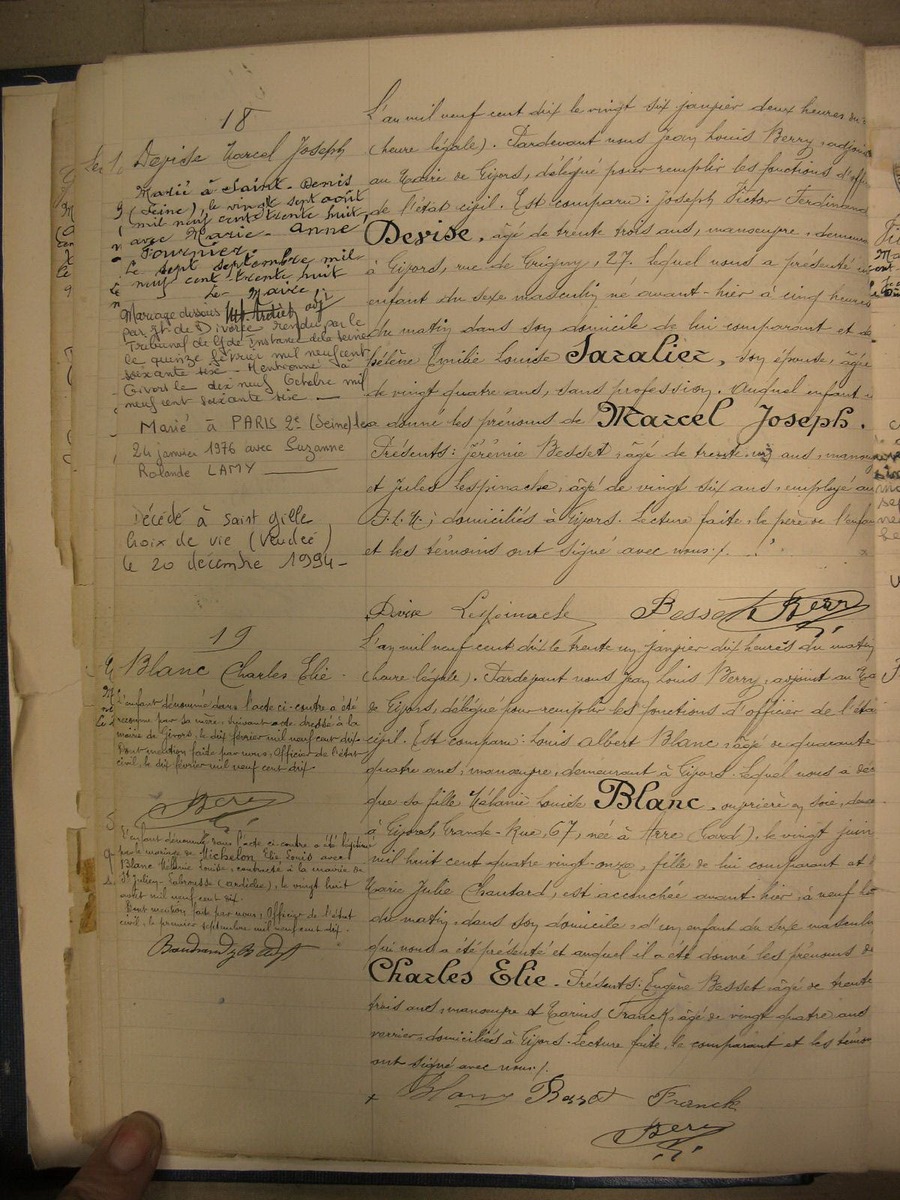 18
Devise Marcel Joseph
Marié à Saint-Denis
(Seine), le vingt sept août
mil neuf cent trente huit
avec Marie-Anne
Fournier.
Le sept septembre mil
neuf cent trente huit
Le Maire,
Mariage dessous
par Jt de Divorce rendu par le
Tribunal de Gde Instance de la Seine
le quinze février mil neuf cent
soixante six. Mentionné à
Givors le dix neuf Octobre mil
neuf cent soixante six. —
Marié à PARIS 2e (Seine) le
24 janvier 1976 avec Suzanne
Rolande LAMY
Décédé à Saint Gille
Croix de vie (Vendée)
le 20 décembre 1994-
L'an mil neuf cent dix le vingt six janvier deux heures du
(heure légale). Pardevant nous Jean Louis Berry, adjoint
au Maire de Givors, délégué pour remplir les fonctions d'offi
de l'état civil. Est comparu : Joseph Victor Ferdinand
Devise, âgé de trente trois ans, manœuvre, demeura
à Givors, rue de Grigny, 27. lequel nous a présenté un
enfant du sexe masculin né avant-hier à cinq heures
du matin dans son domicile de lui comparant et de
Emilie Louise Saralier, son épouse, âgée
de vingt quatre ans, sans profession. Auquel enfant il
a donné les prénoms de Marcel Joseph.
Présents : Jérémie Besset, âgé de trente un ans, manœu
et Jules Lespinache, âgé de vingt six ans, employé au
P.L.M.; domiciliés à Givors. Lecture faite, le père de l'enfant
et les témoins ont signé avec nous./.
Devise Lespinache Besset Berry
19
Blanc Charles Elie
L'enfant dénommé dans l'acte ci-contre a été
reconnu par sa mère suivant acte dressé à la
mairie de Givors, le dix février mil neuf cent dix.
Dont mention faite par nous, Officier de l'état
civil, le dix février mil neuf cent dix.
Berry
L'enfant dénommé dans l'acte ci-contre a été légitimé
par le mariage de Michelon Elie Louis avec
Blanc Mélanie Louise, contracté à la mairie de
St Julien-Labrousse (Ardèche), le vingt huit
août mil neuf cent dix.
Dont mention faite par nous, Officier de l'état
civil, le premier septembre mil neuf cent dix.
L'an mil neuf cent dix le trente un janvier dix heures du matin
(heure légale). Pardevant nous Jean Louis Berry, adjoint au Ma
de Givors, délégué pour remplir les fonctions d'officier de l'état
civil. Est comparu : Louis Albert Blanc, âgé de quarante
quatre ans, manœuvre, demeurant à Givors. Lequel nous a déc
que sa fille Mélanie Louise Blanc, ouvrière en soie, deme
à Givors, Grande-Rue, 67, née à Arre (Gard), le vingt juin
mil huit cent quatre vingt-onze, fille de lui comparant et
Marie Julie Chautard, est accouchée avant-hier, à neuf he
du matin, dans son domicile, d'un enfant du sexe masculin
qui nous a été présenté et auquel il a été donné les prénoms de
Charles Elie. Présents : Eugène Besset âgé de trente
trois ans, manœuvre et Marius Franck, âgé de vingt quatre ans
verrier, domiciliés à Givors. Lecture faite, le comparant et les témoi
ont signé avec nous./.
Blanc Besset Franck
Berry